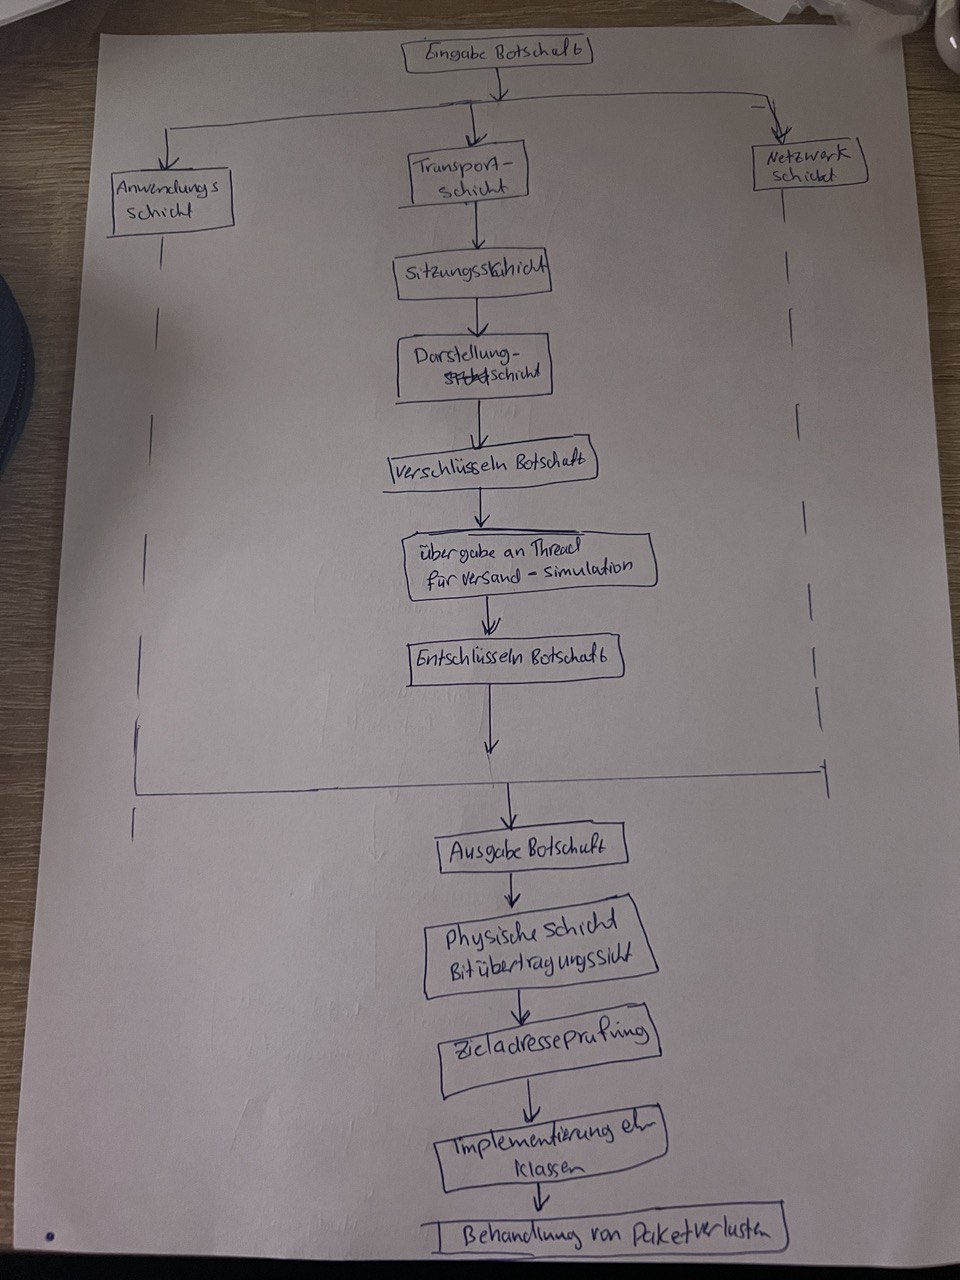 Eingabe Botschaft
Anwendungs
schicht
Transport-
schicht
Netzwerk
schicht
Sitzungsschicht
Darstellung-
schicht
verschlüsseln Botschaft
übergabe an Thread
für versand - simulation
Entschlüsseln Botschaft
Ausgabe Botschaft
Physische schicht
Bitübertragungssicht
Zieladresseprüfung
Implementierung
Klassen
Behandlung von Paketverlusten